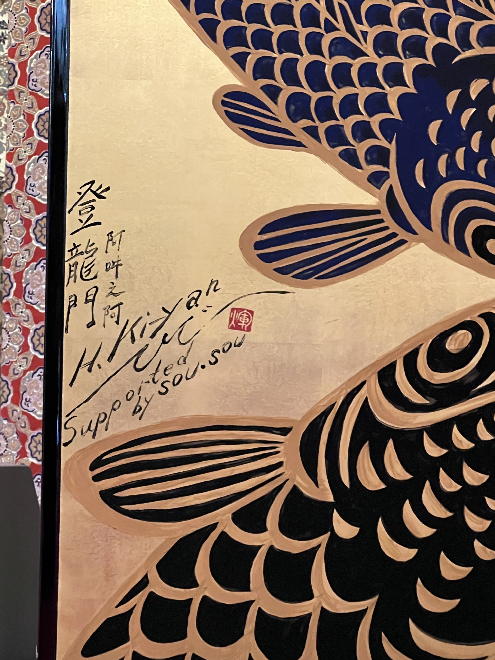 登龍門
阿吽之阿
H. Kiyan
Supported
by sou.sou
煇